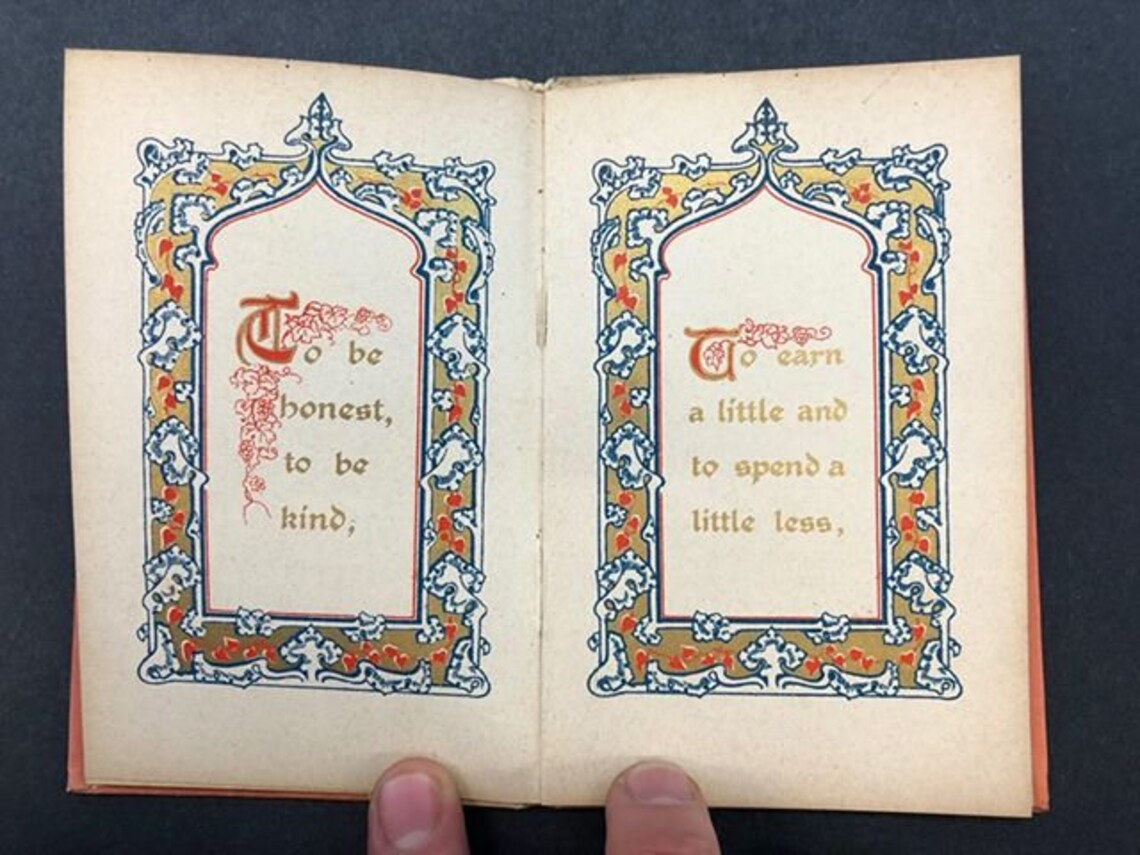 To be
honest,
to be
kind;
To earn
a little and
to spend a
little less,